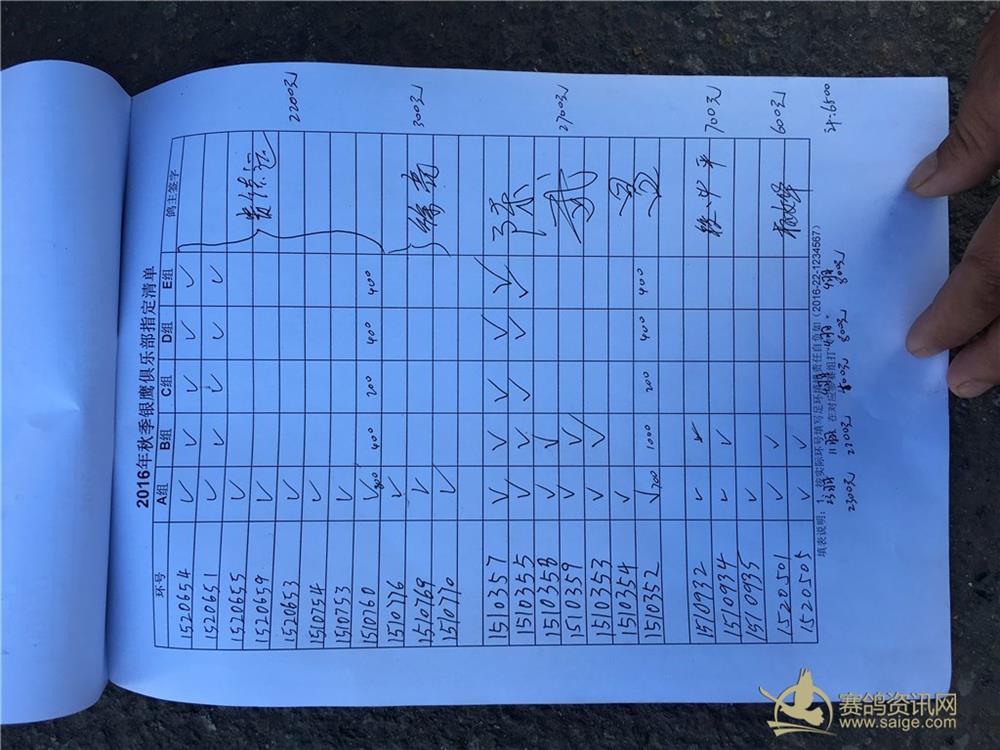 2016年秋季银鹰俱乐部指定清单
环号 A组 B组 C组 D组 E组 鸽主签字
1520654 ✓ ✓ ✓ ✓ ✓
1520651 ✓ ✓ ✓ ✓ ✓
1520655 ✓
1520659 ✓
1520653 ✓ 2200元
1510754 ✓
1510753 ✓
1510760 ✓ 800 400 200 400 400
1510776 ✓
1510769 ✓ 300元
1510770 ✓
1510357 ✓ ✓ ✓ ✓ ✓ 陈
1510355 ✓ ✓ ✓ ✓ ✓
1510358 ✓ ✓ 武
1510359 ✓ ✓ 2700元
1510353 ✓ ✓
1510354 ✓
1510352 ✓ 700 1000 200 400 400
1510932 ✓ ✓
1510934 ✓ ✓ 700元
1510935 ✓
1520501 ✓ ✓ 600元
1520505 ✓ ✓
填表说明：1、按实际环号填写足环填错责任自负如（2016-22-1234567）
23羽 11羽 在对应赛组打 4羽 4羽
2300元 2200元 400元 800元 800元
计:6500
赛鸽资讯网
www.saige.com